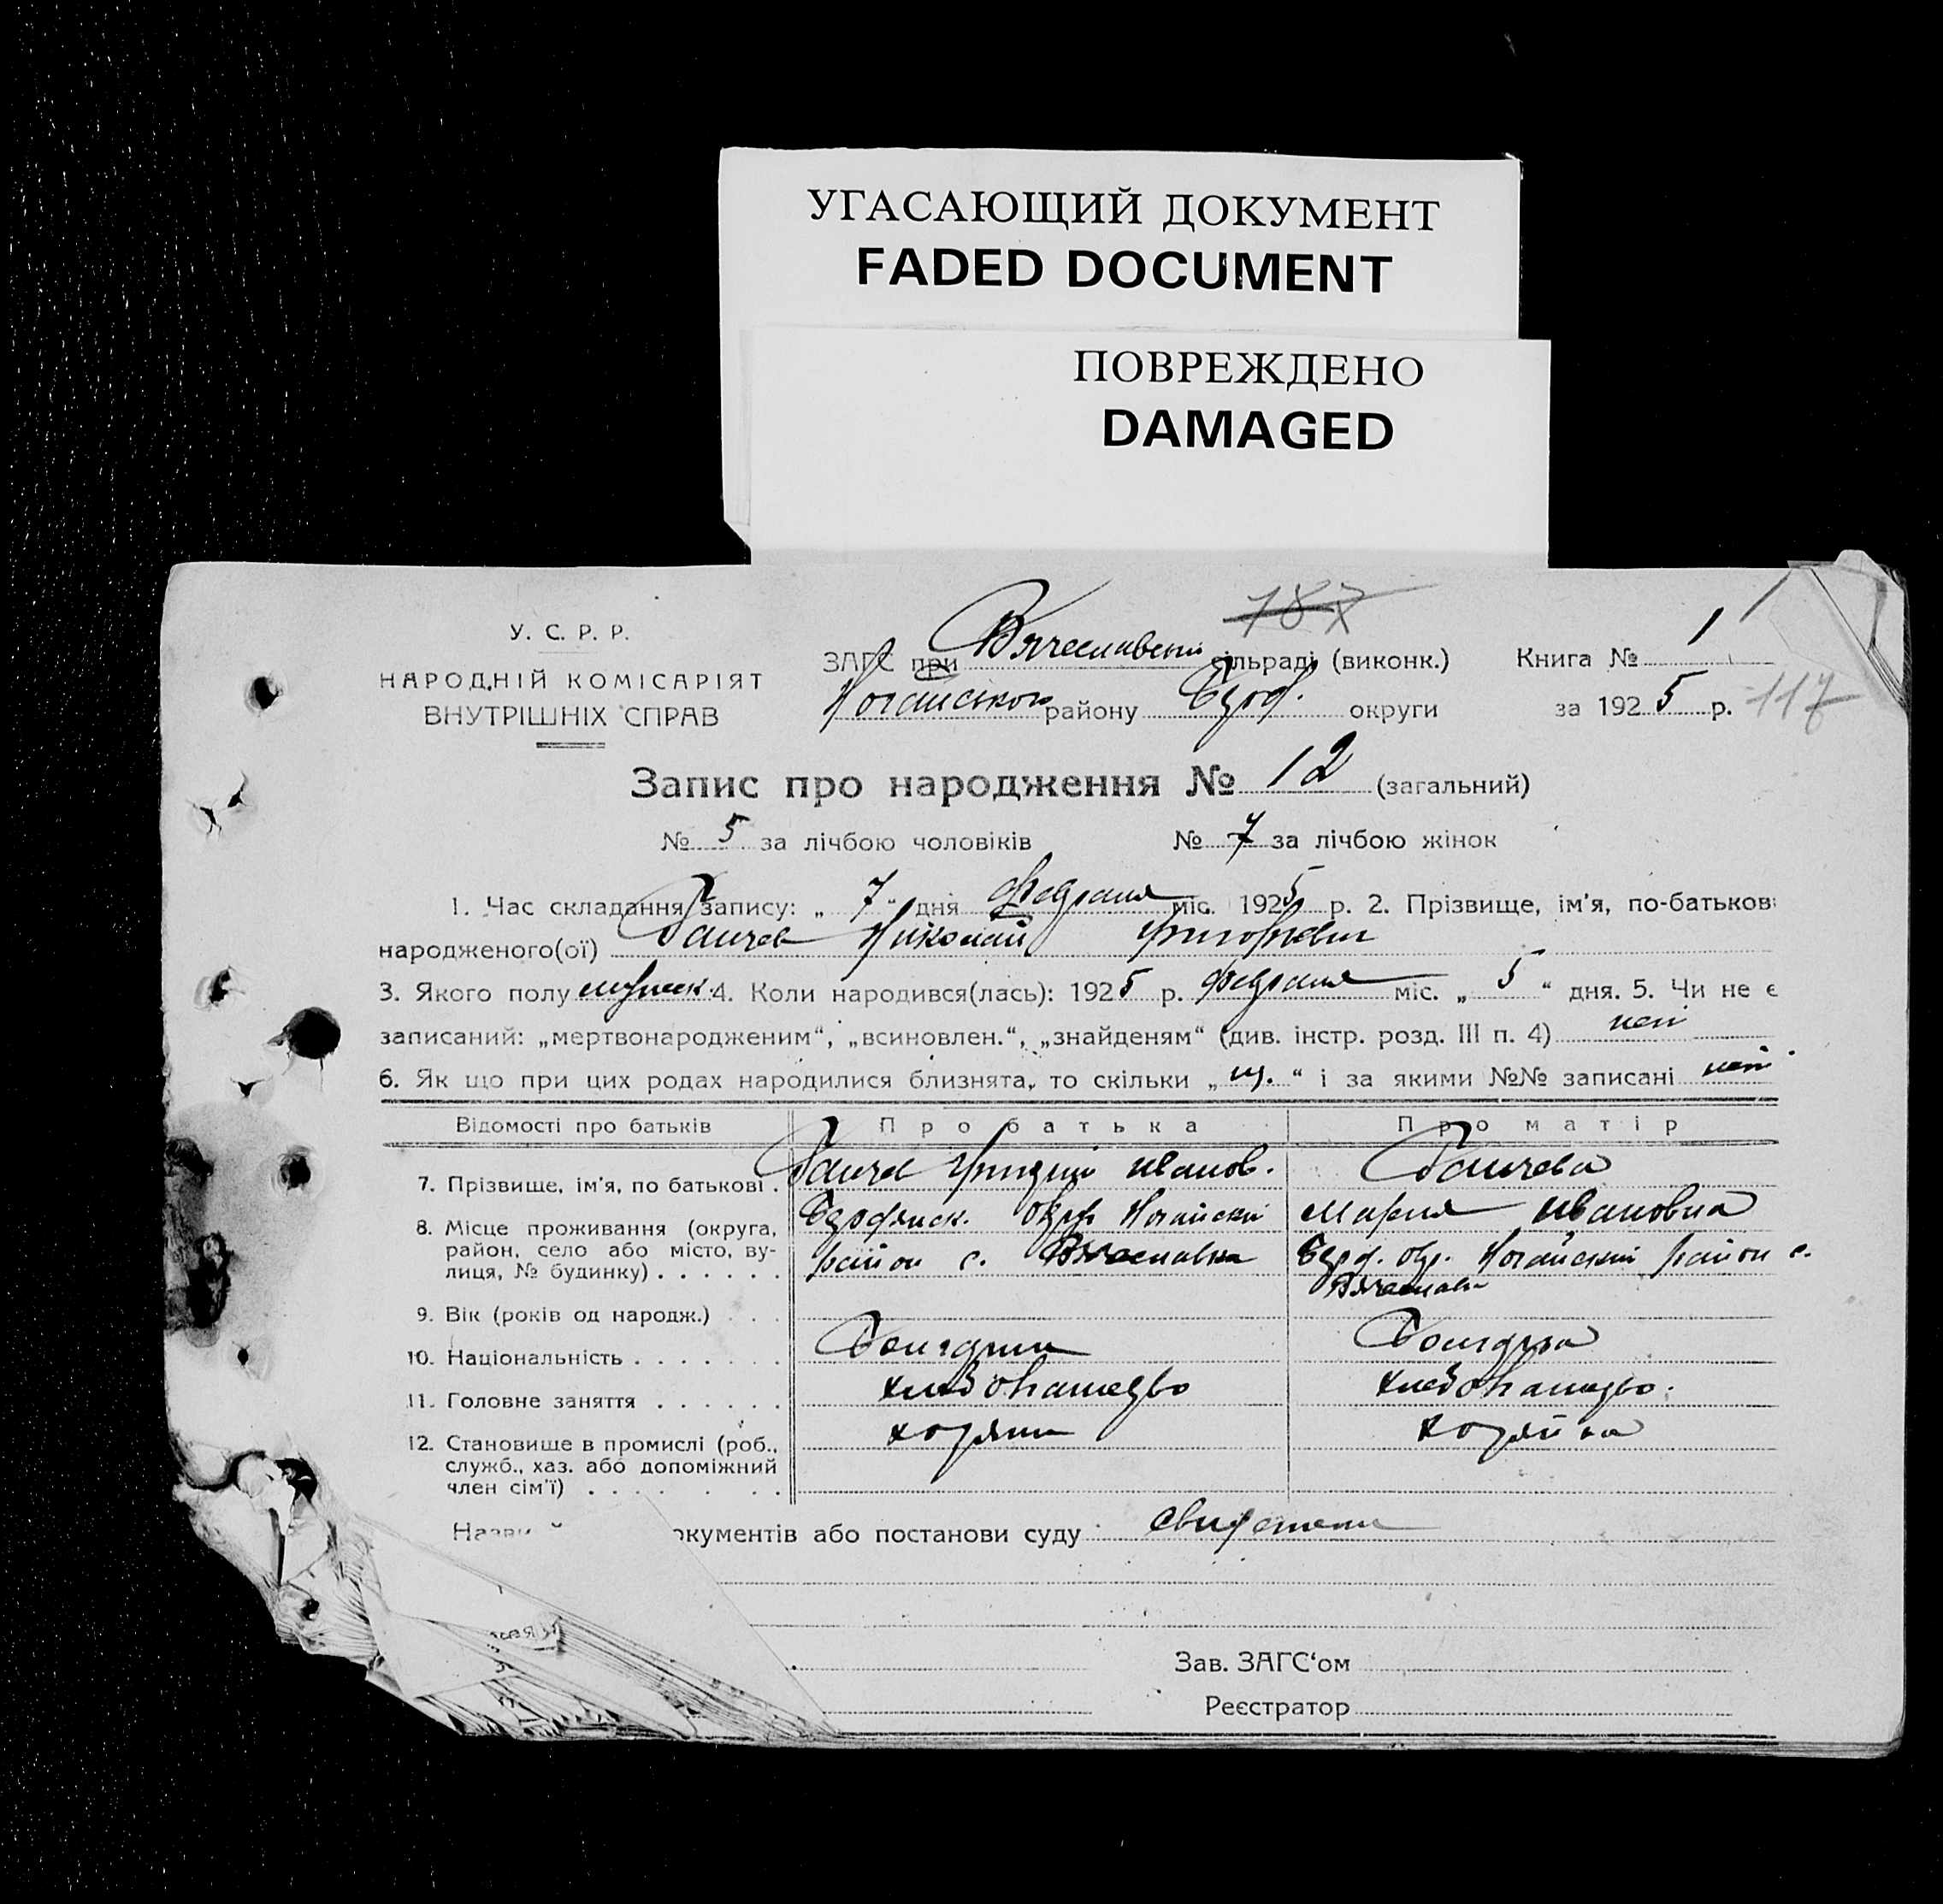 УГАСАЮЩИЙ ДОКУМЕНТ
FADED DOCUMENT
ПОВРЕЖДЕНО
DAMAGED
187
У. С. Р. Р.
НАРОДНІЙ КОМІСАРІЯТ
ВНУТРІШНІХ СПРАВ
ЗАГС при Вячеславській сільраді (виконк.) Книга № 1
Ногайського району Берд. округи за 1925 р. 117
Запис про народження № 12 (загальний)
№ 5 за лічбою чоловіків № 7 за лічбою жінок
1. Час складання запису: „ 7 “ дня Февраля міс. 1925 р. 2. Прізвище, ім'я, по-батькові
народженого(ої) Николай Григорьевич
3. Якого полу мужск. 4. Коли народився(лась): 1925 р. Февраля міс. „ 5 “ дня. 5. Чи не є
записаний: „мертвонародженим“, „всиновлен.“, „знайденям“ (див. інстр. розд. III п. 4) нет
6. Як що при цих родах народилися близнята, то скільки „ “ і за якими №№ записані нет
Відомості про батьків Про батька Про матір
7. Прізвище, ім'я, по батькові . Иванов.
8. Місце проживання (округа,
район, село або місто, ву-
лиця, № будинку) . . . . . .
Бердянск. окр. Ногайский
район с. Вячеславка
Мария Ивановна
Берд. окр. Ногайский район с.
Вячеславк
9. Вік (років од народж.) . . .
10. Національність . . . . . . . Болгарин Болгарка
11. Головне заняття . . . . . . хлебопашество хлебопашество.
12. Становище в промислі (роб.,
служб., хаз. або допоміжний
член сім'ї) . . . . . . .
хозяин хозяйка
окументів або постанови суду свидетели
Зав. ЗАГС‘ом
Реєстратор